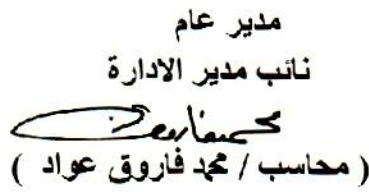 مدير عام
نائب مدير الادارة
محمد فاروق
( محاسب / محمد فاروق عواد )